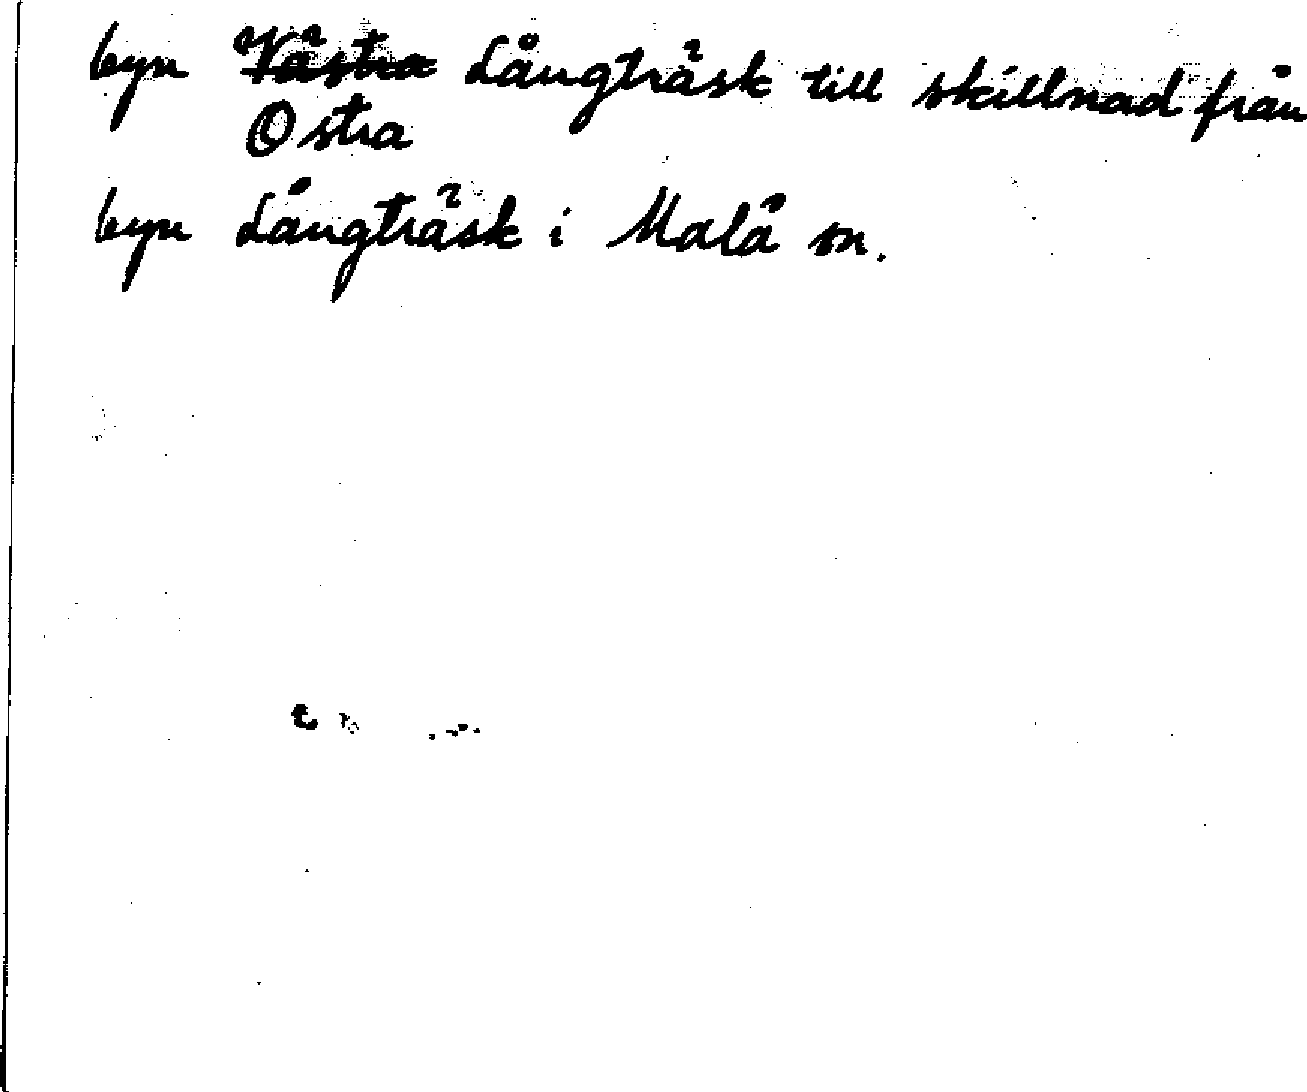 byn Västra Långträsk till skillnad från
Östra
byn Långträsk i Malå sn.